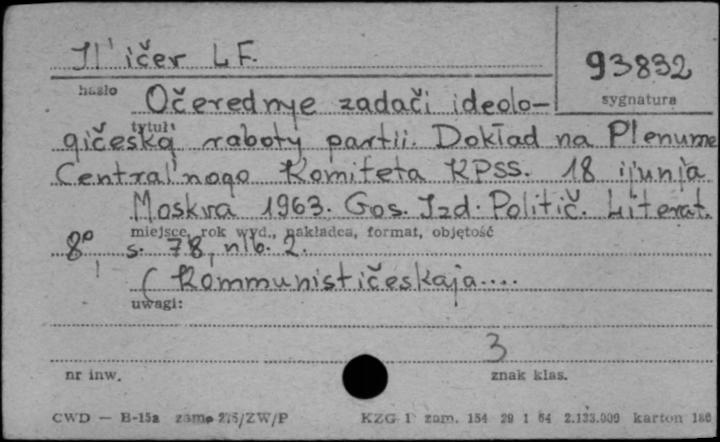 Il'ičer L F.
93832
hasło
sygnatura
Očerednye zadači ideolo-
tytuł:
gičeską raboty partii. Dokład na Plenume
Central'nogo Komiteta KPSS. 18 ijunja
Moskva 1963. Gos. Izd. Politič. Literat.
miejsce, rok wyd., nakładca, format, objętość
8° s. 78, nlb. 2.
(Kommunističeskaja....
uwagi:
3
nr inw.
znak klas.
CWD — B-15a zam. 275/ZW/P KZG 1 zam. 154 29 1 64 2.133.000 karton 180